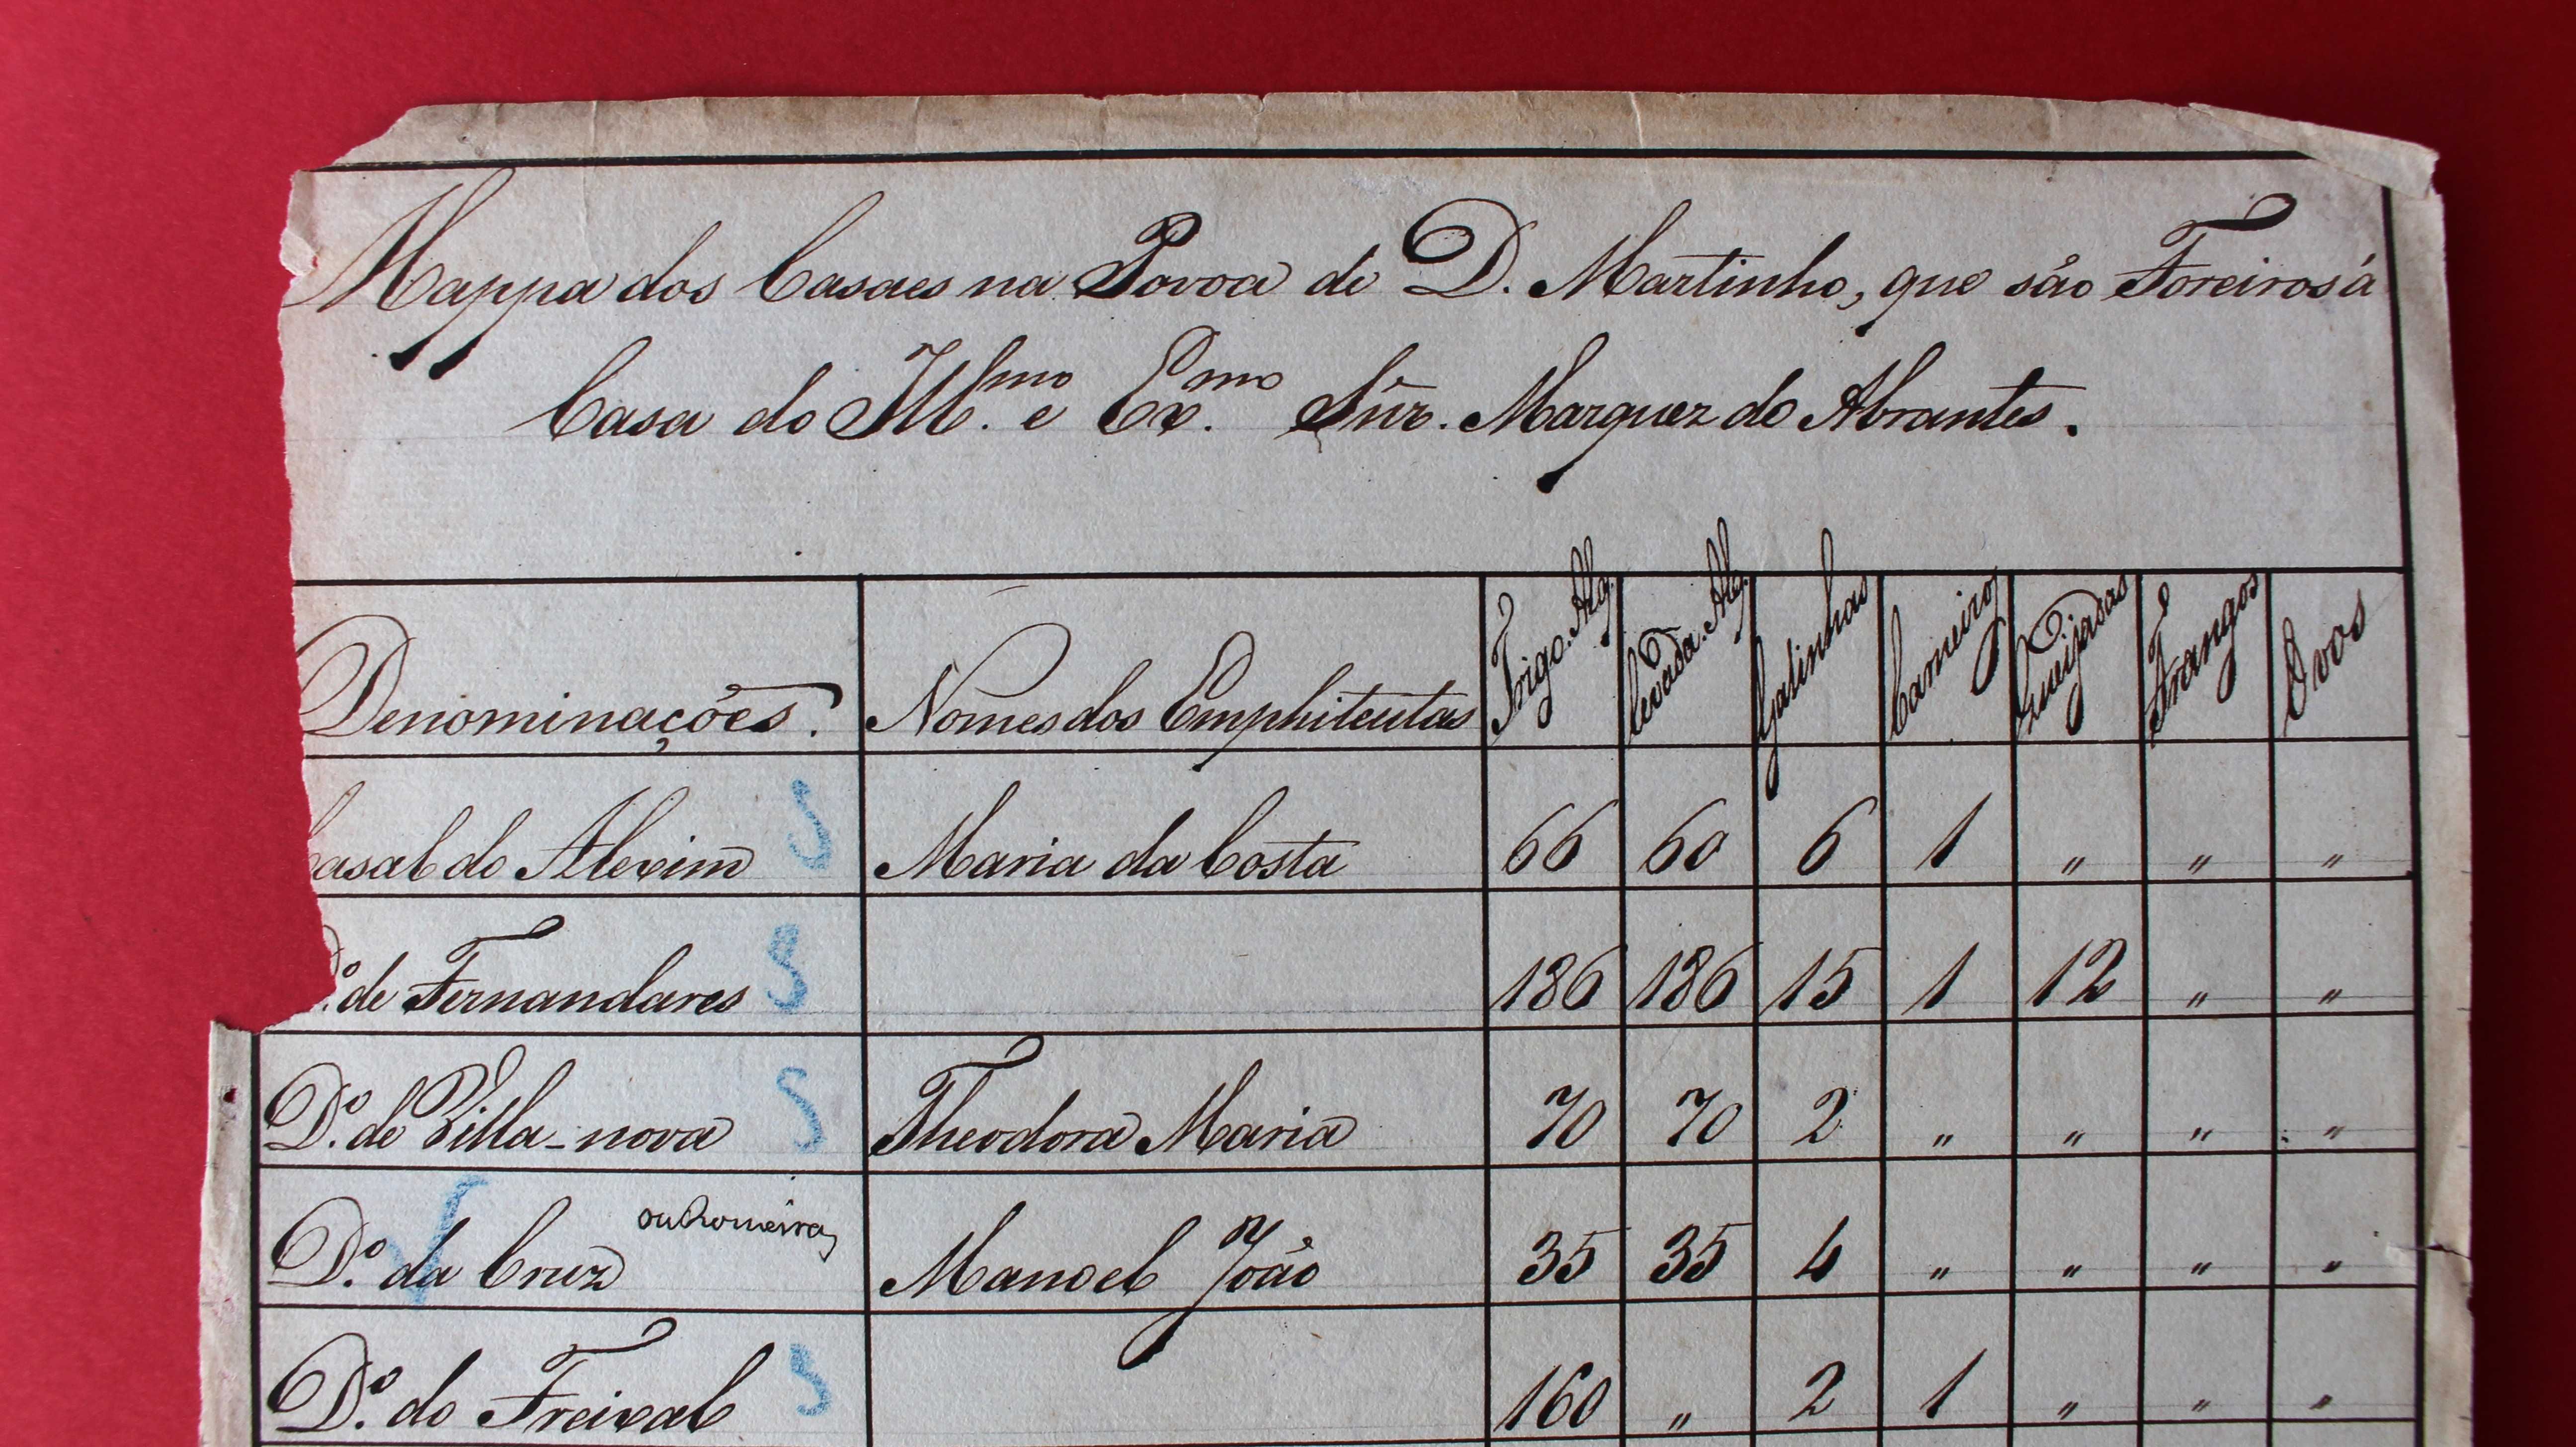 Mappa dos Casaes na Povoa de D. Martinho, que são Foreiros á
Casa do Ill.mo e Ex.mo Snr. Marquez de Abrantes.
Denominações. Nomes dos Emphiteutas Trigo. Alq. Cevada. Alq. Galinhas Carneiros Queijadas Frangos Ovos
Casal do Aleixim S Maria da Costa 66 60 6 1 " " "
D.º de Fernandares S 186 186 15 1 12 " "
D.º de Villa-nova S Theodora Maria 70 70 2 " " " "
D.º da Cruz ou Romeiras Manoel João 35 35 4 " " " "
D.º do Freixal S 160 " 2 1 " " "